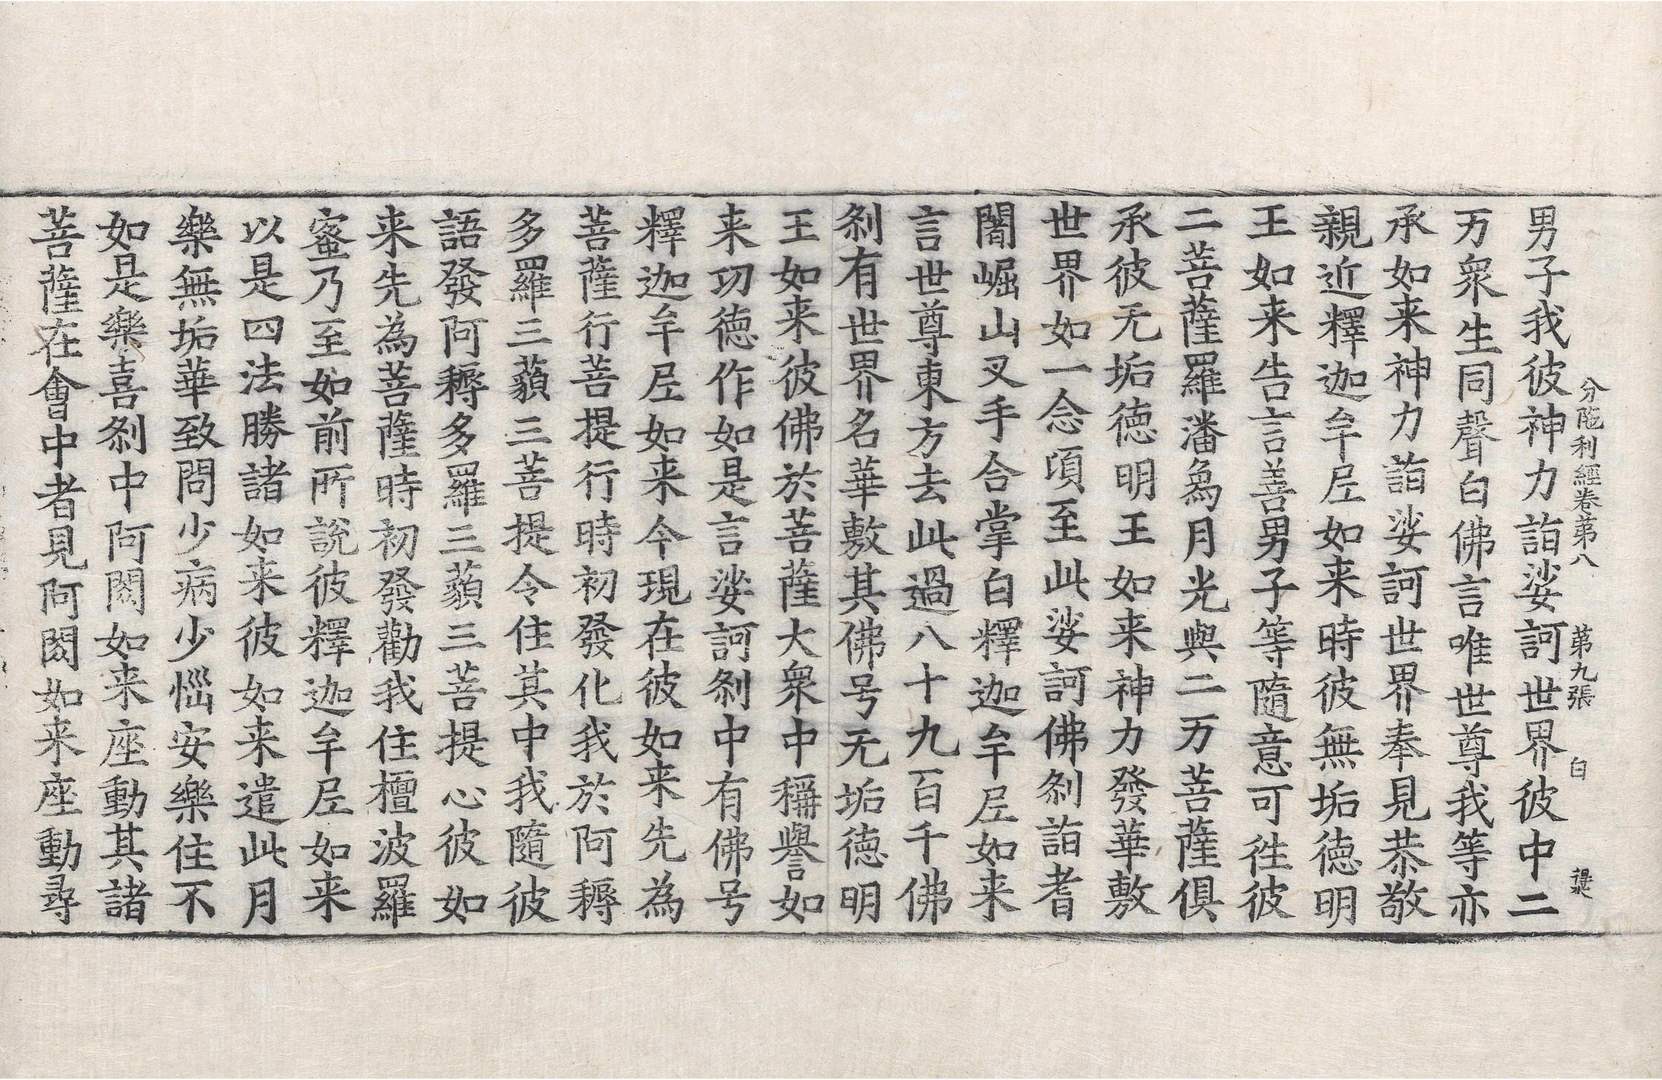 分陁利經卷第八　第九張　白
男子我彼神力詣娑訶世界彼中二
万衆生同聲白佛言唯世尊我等亦
承如来神力詣娑訶世界奉見恭敬
親近釋迦牟尼如来時彼無垢德明
王如来告言善男子等隨意可徃彼
二菩薩羅潘為月光與二万菩薩俱
承彼无垢德明王如来神力發華敷
世界如一念頃至此娑訶佛刹詣耆
闍崛山叉手合掌白釋迦牟尼如来
言世尊東方去此過八十九百千佛
刹有世界名華敷其佛号无垢德明
王如来彼佛於菩薩大衆中稱譽如
来功德作如是言娑訶刹中有佛号
釋迦牟尼如来今現在彼如来先為
菩薩行菩提行時初發化我於阿耨
多羅三藐三菩提令住其中我隨彼
語發阿耨多羅三藐三菩提心彼如
来先為菩薩時初發勸我住檀波羅
蜜乃至如前所說彼釋迦牟尼如来
以是四法勝諸如来彼如来遣此月
樂無垢華致問少病少惱安樂住不
如是樂喜刹中阿閦如来座動其諸
菩薩在會中者見阿閦如来座動尋